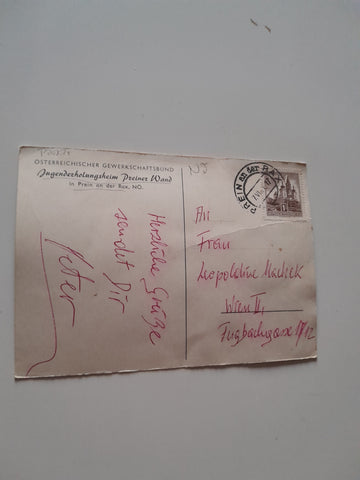 ÖSTERREICHISCHER GEWERKSCHAFTSBUND
Jugenderholungsheim Preiner Wand
in Prein an der Rax, NÖ.
Herzliche Grüße
sendet Dir
Peter
NÖ
PREIN an der RAX
An
Frau
Leopoldine
Wien II,